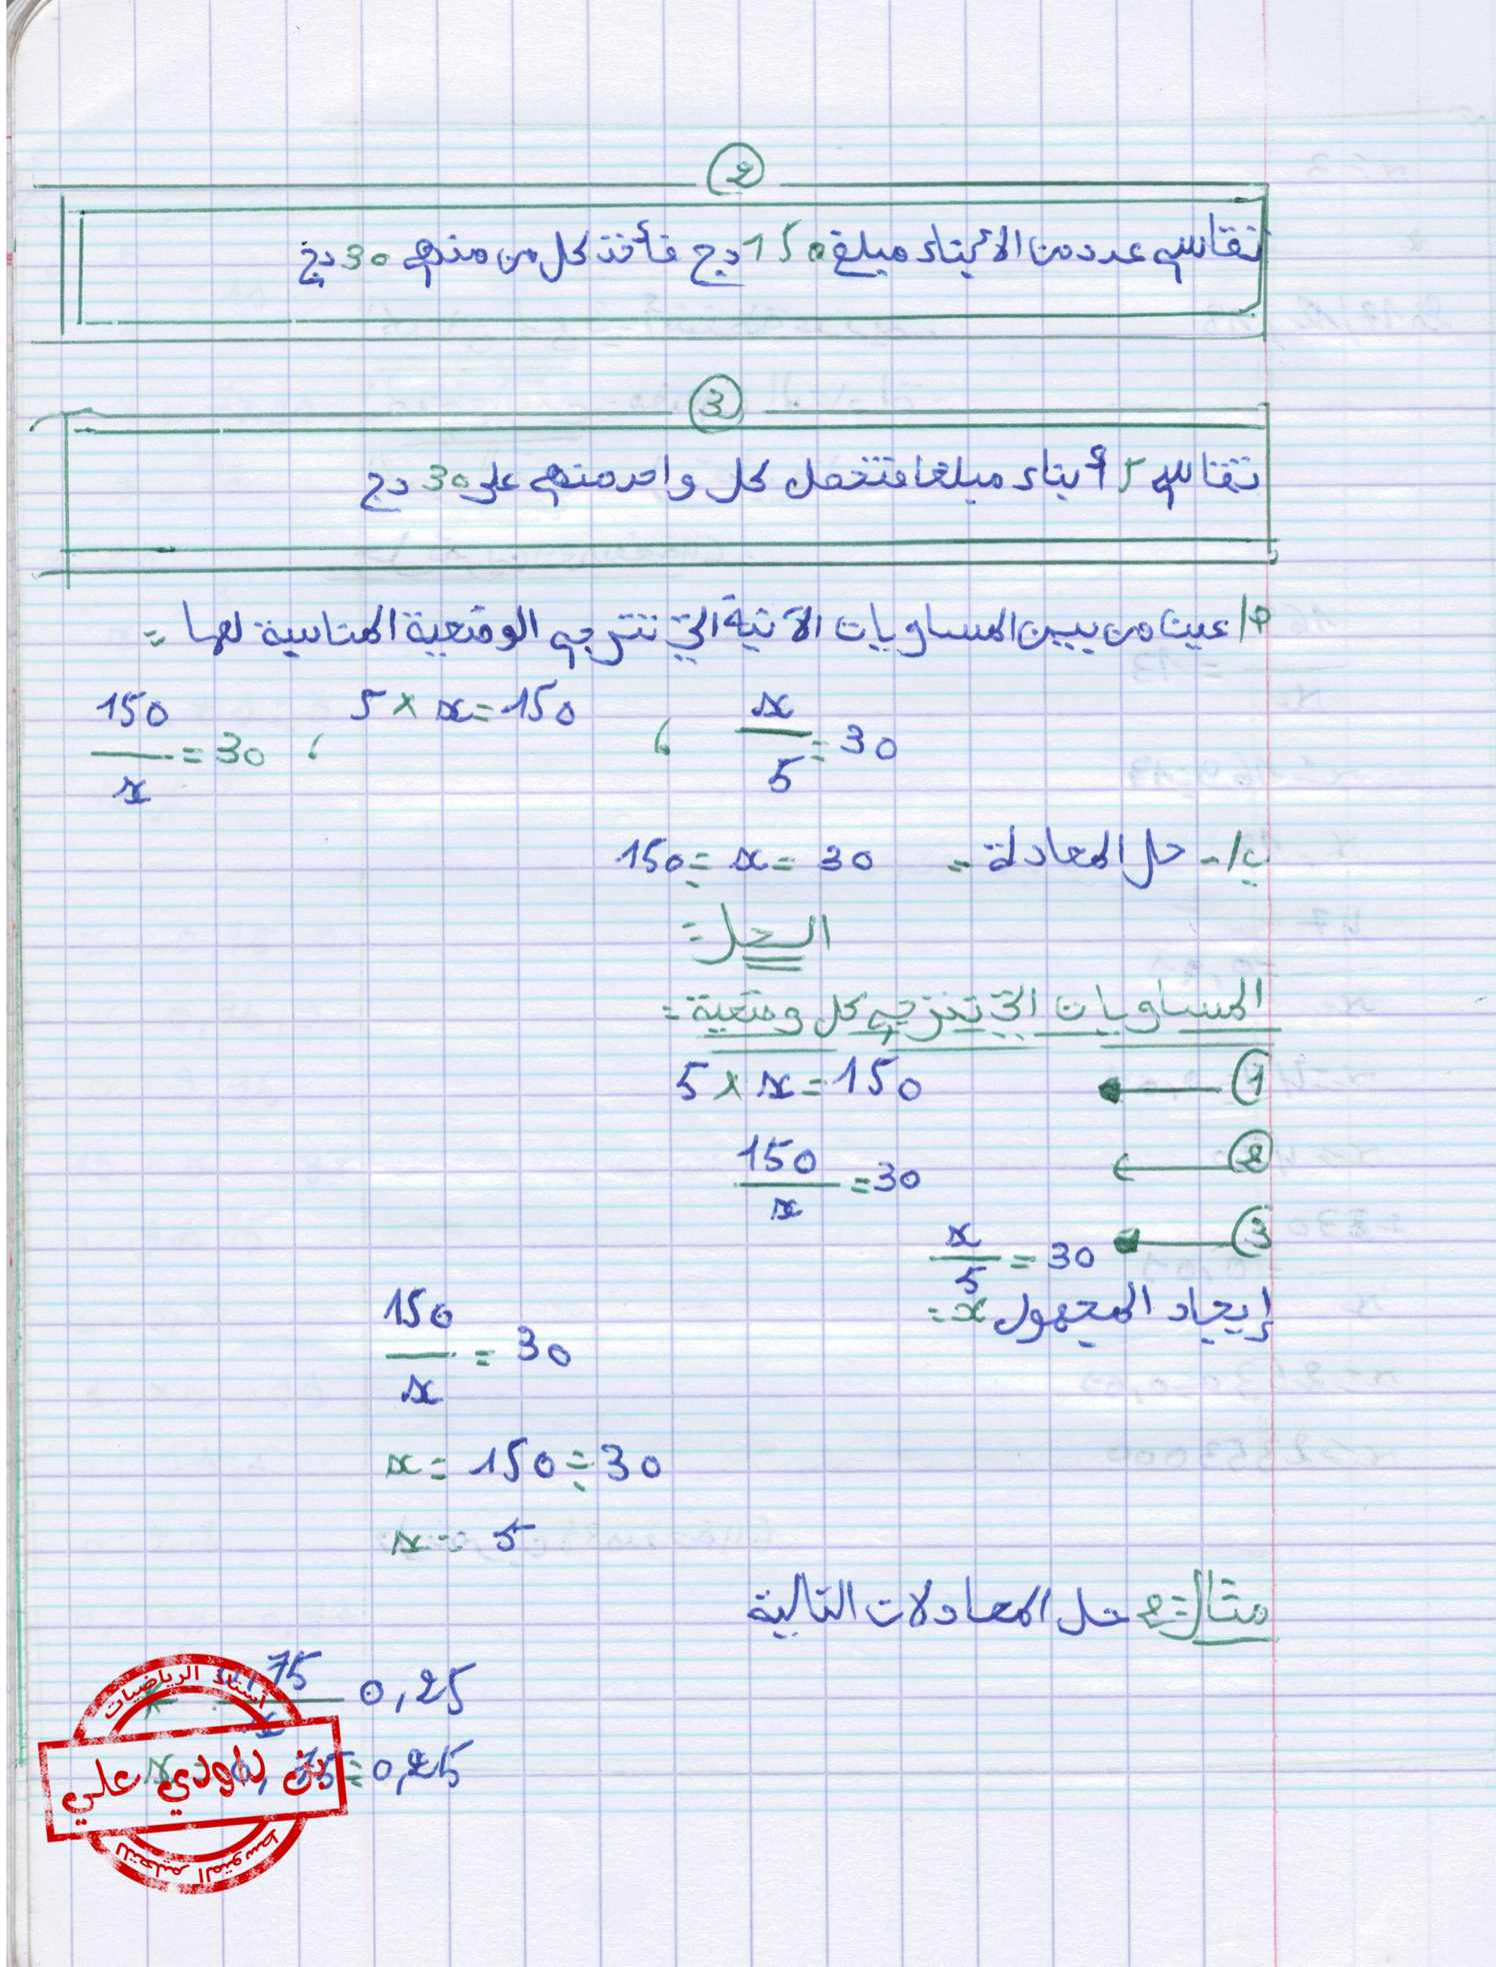 2
تقاسم عدد من الأبناء مبلغ 150 دج فأخذ كل من منهم 30 دج
3
تقاسم 5 أبناء مبلغا فتحصل كل واحد منهم على 30 دج
أ/ عين من بين المساويات الآتية التي تترجم الوضعية المناسبة لها =
x/5 = 30 ، 5 × x = 150 ، 150/x = 30
ب/- حل المعادلة = 150 ÷ x = 30
الحل =
المساويات التي تترجم كل وضعية =
1 ← 5 × x = 150
2 ← 150/x = 30
3 ← x/5 = 30
إيجاد المجهول x =
150/x = 30
x = 150 ÷ 30
x = 5
مثال 2 = حل المعادلات التالية
75/x 0,25
x = 0,75 ÷ 0,25
أستاذ الرياضيات
بن داودي علي
للتعليم المتوسط